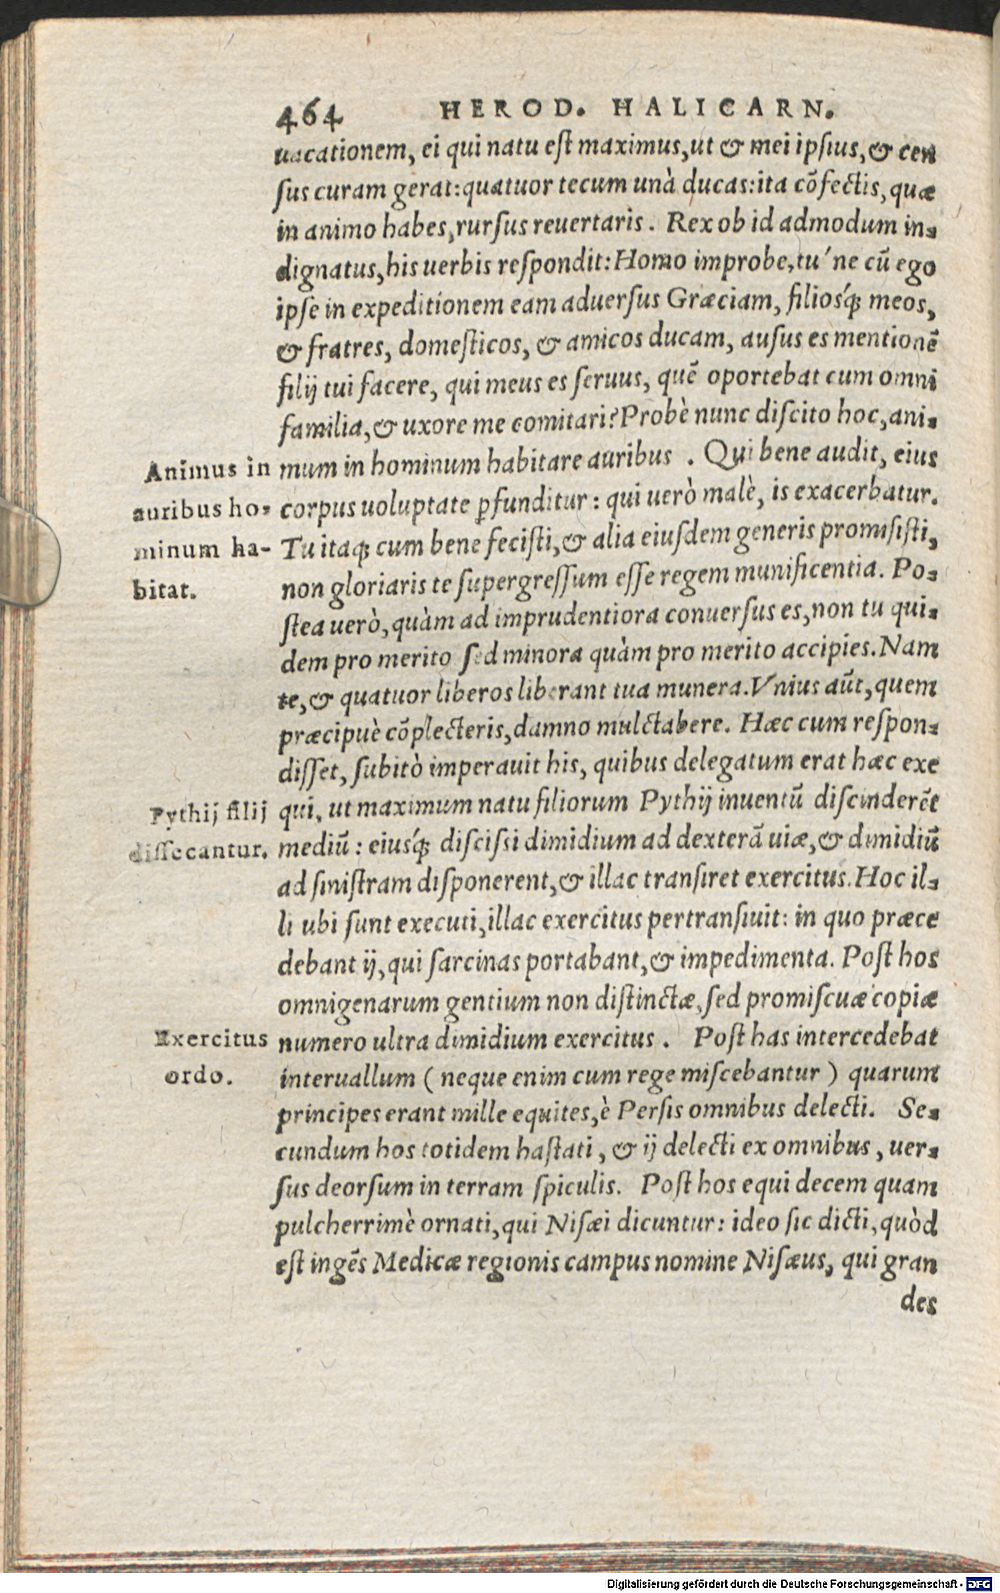 464 HEROD. HALICARN.
uacationem, ei qui natu eſt maximus, ut & mei ipſius, & cen
ſus curam gerat: quatuor tecum unà ducas: ita cõfectis, quæ
in animo habes, rurſus reuertaris. Rex ob id admodum in-
dignatus, his uerbis reſpondit: Homo improbe, tu'ne cũ ego
ipſe in expeditionem eam aduerſus Græciam, filiosq́; meos,
& fratres, domeſticos, & amicos ducam, auſus es mentionẽ
filij tui facere, qui meus es ſeruus, quẽ oportebat cum omni
familia, & uxore me comitari? Probè nunc diſcito hoc, ani-
Animus in
auribus ho-
minum ha-
bitat.
mum in hominum habitare auribus. Qui bene audit, eius
corpus uoluptate ꝑfunditur: qui uerò malè, is exacerbatur.
Tu itaq; cum bene feciſti, & alia eiuſdem generis promiſiſti,
non gloriaris te ſupergreſſum eſſe regem munificentia. Po-
ſtea uerò, quàm ad imprudentiora conuerſus es, non tu qui-
dem pro merito ſed minora quàm pro merito accipies. Nam
te, & quatuor liberos liberant tua munera. Vnius aũt, quem
præcipuè cõplecteris, damno mulctabere. Hæc cum reſpon-
diſſet, ſubitò imperauit his, quibus delegatum erat hæc exe
Pythij filij
diſſecantur.
qui, ut maximum natu filiorum Pythij inuentũ diſcinderẽt
mediũ: eiusq́; diſciſsi dimidium ad dexterã uiæ, & dimidiũ
ad ſiniſtram diſponerent, & illac tranſiret exercitus. Hoc il-
li ubi ſunt executi, illac exercitus pertranſiuit: in quo præce
debant ij, qui ſarcinas portabant, & impedimenta. Poſt hos
omnigenarum gentium non diſtinctæ, ſed promiſcuæ copiæ
Exercitus
ordo.
numero ultra dimidium exercitus. Poſt has intercedebat
interuallum (neque enim cum rege miſcebantur) quarum
principes erant mille equites, è Perſis omnibus delecti. Se-
cundum hos totidem haſtati, & ij delecti ex omnibus, uer-
ſus deorſum in terram ſpiculis. Poſt hos equi decem quam
pulcherrimè ornati, qui Niſæi dicuntur: ideo ſic dicti, quòd
eſt ingẽs Medicæ regionis campus nomine Niſæus, qui gran
des
Digitalisierung gefördert durch die Deutsche Forschungsgemeinschaft - DFG